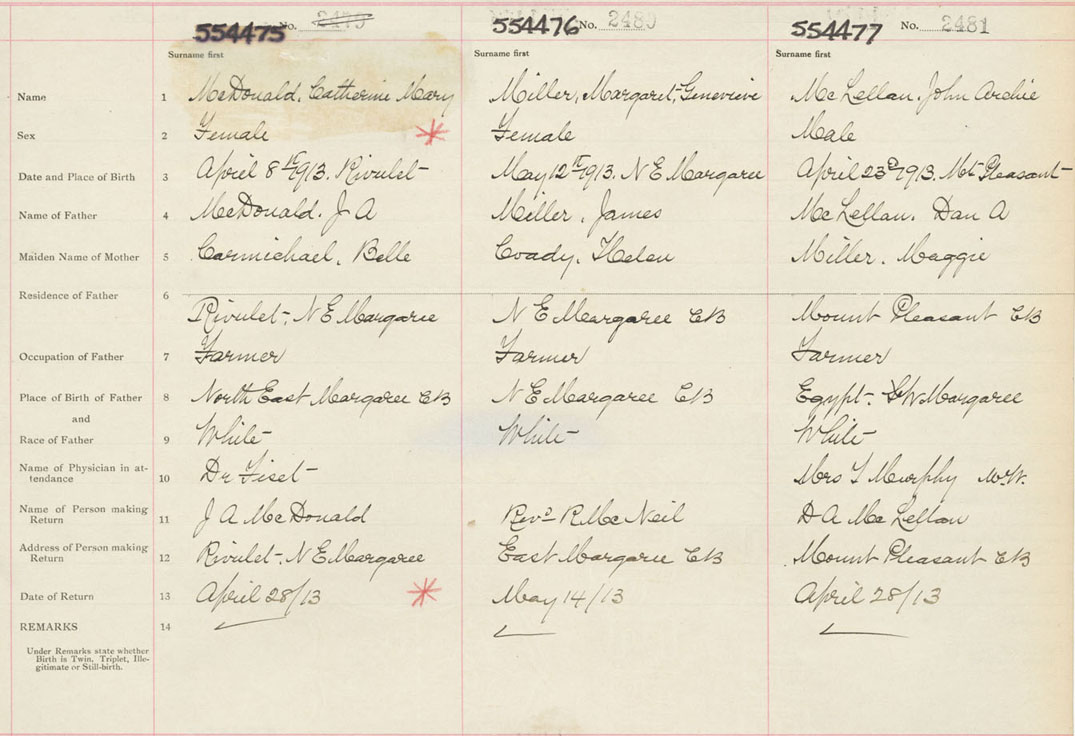 554475 No. 2479 554476 No. 2480 554477 No. 2481
Surname first Surname first Surname first
Name 1 McDonald, Catherine Mary Miller, Margaret Genevieve McLellan, John Archie
Sex 2 Female Female Male
Date and Place of Birth 3 April 8th 1913. Rivulet May 12th 1913. N E Margaree April 23d 1913. Mt Pleasant
Name of Father 4 McDonald. J A Miller, James McLellan. Dan A
Maiden Name of Mother 5 Carmichael, Belle Coady, Helen Miller. Maggie
Residence of Father 6
Rivulet, N E Margaree N E Margaree CB Mount Pleasant CB
Occupation of Father 7 Farmer Farmer Farmer
Place of Birth of Father 8 North East Margaree CB N E Margaree CB Egypt- SW Margaree
and
Race of Father 9 White White White
Name of Physician in at-
tendance 10 Dr Fiset Mrs Murphy
Name of Person making
Return 11 J A McDonald Revd R McNeil D A McLellan
Address of Person making
Return 12 Rivulet- N E Margaree East Margaree CB Mount Pleasant CB
Date of Return 13 April 28/13 May 14/13 April 28/13
REMARKS 14
Under Remarks state whether
Birth is Twin, Triplet, Ille-
gitimate or Still-birth.